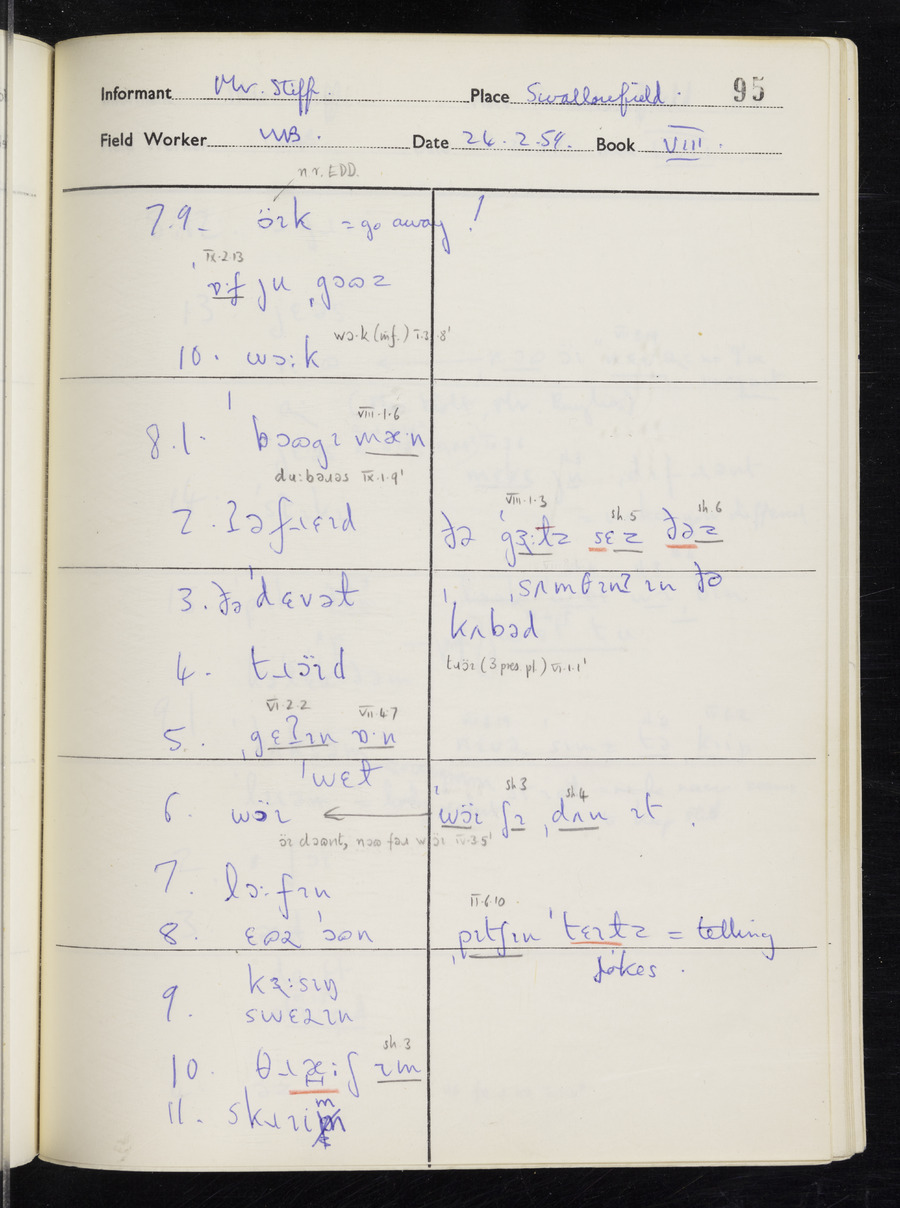 Informant Mr. Stiff. Place Swallowfield. 95
Field Worker WB. Date 24.2.59. Book VIII.
n.r. EDD.
7.9. öɪk = go away!
IX.2.13
ju ˌgɔʊz
wɔ·k (inf.) I.3.8'
10. wɔ:k
VIII.1.6
8.1. ˈbɔʊgɪ mæ·n
du:bəɹəs IX.1.9'
VIII.1.3 sh.5 sh.6
2. ʔəfɹɛɪd ðə ˈgɜ̜:tz sɛz ðəz
3. ðə ˈdɛvət ˌsʌmθɪnʔ ɪn ðə
ˈkʌbəd
4. tɹöɪd tɹöɪ (3 pres. pl.) VI.1.1'
VI.2.2 VII.4.7
5. ˌgɛʔɪn ɒ·n
ˈwɛt
sh 3 sh 4
6. wöɪ ← wöɪ ʃɪ ˌdʌn ɪt.
öɪ dɔʊnt, nɔʊ fəɹ wöɪ IV.3.5'
7. lɔ:fɪn
II.6.10
8. ɛʊɹ ˈɔʊn ˌpɪtʃɪn ˈtɛɪtz = telling
jokes.
9. kɜ̜:sɪŋ
swɛəɹɪn
sh.3
10. θɹæ:ʃ ɪm
11. skɹɪim